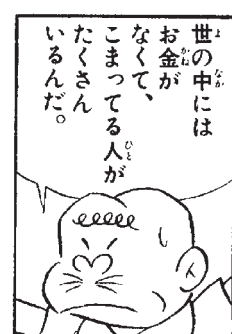 世の中には
お金が
なくて、
こまってる人が
たくさん
いるんだ。